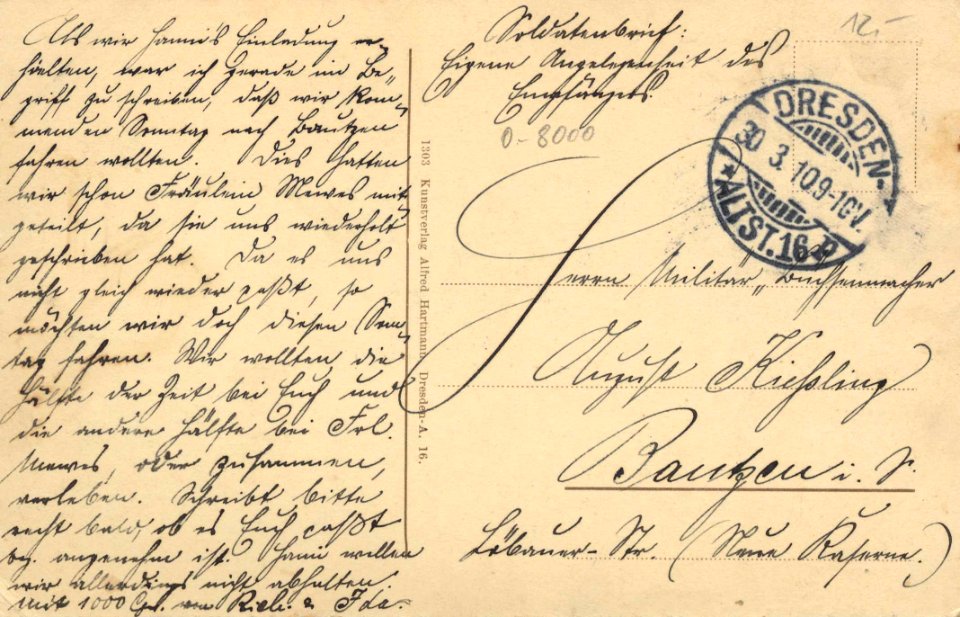 Als wir Hanni's Einladung er-
hielten, war ich gerade im Be-
griff zu schreiben, daß wir kom-
menden Sonntag nach Bautzen
fahren wollten. Dies hatten
wir schon Fräulein Mewes mit-
geteilt, da sie uns wiederholt
geschrieben hat. Da es uns
nicht gleich wieder paßt, so
möchten wir doch diesen Sonn-
tag fahren. Wir wollten die
Hälfte der Zeit bei Euch und
die andere Hälfte bei Frl.
Mewes, oder zusammen,
verleben. Schreibt bitte
recht bald, ob es Euch paßt
bz. angenehm ist. Hanni wollen
wir allerdings nicht abhalten.
Mit 1000 Gr. von & Ida.
1303 Kunstverlag Alfred Hartmann, Dresden-A. 16.
Soldatenbrief:
Eigene Angelegenheit des
Empfängers.
12.-
0-8000
DRESDEN-
30 3. 10.9-10V.
*ALTST.16
Herrn Militär-Büchsenmacher
August Kießling
Bautzen i. S.
Löbauer-Str. (Neue Kaserne.)